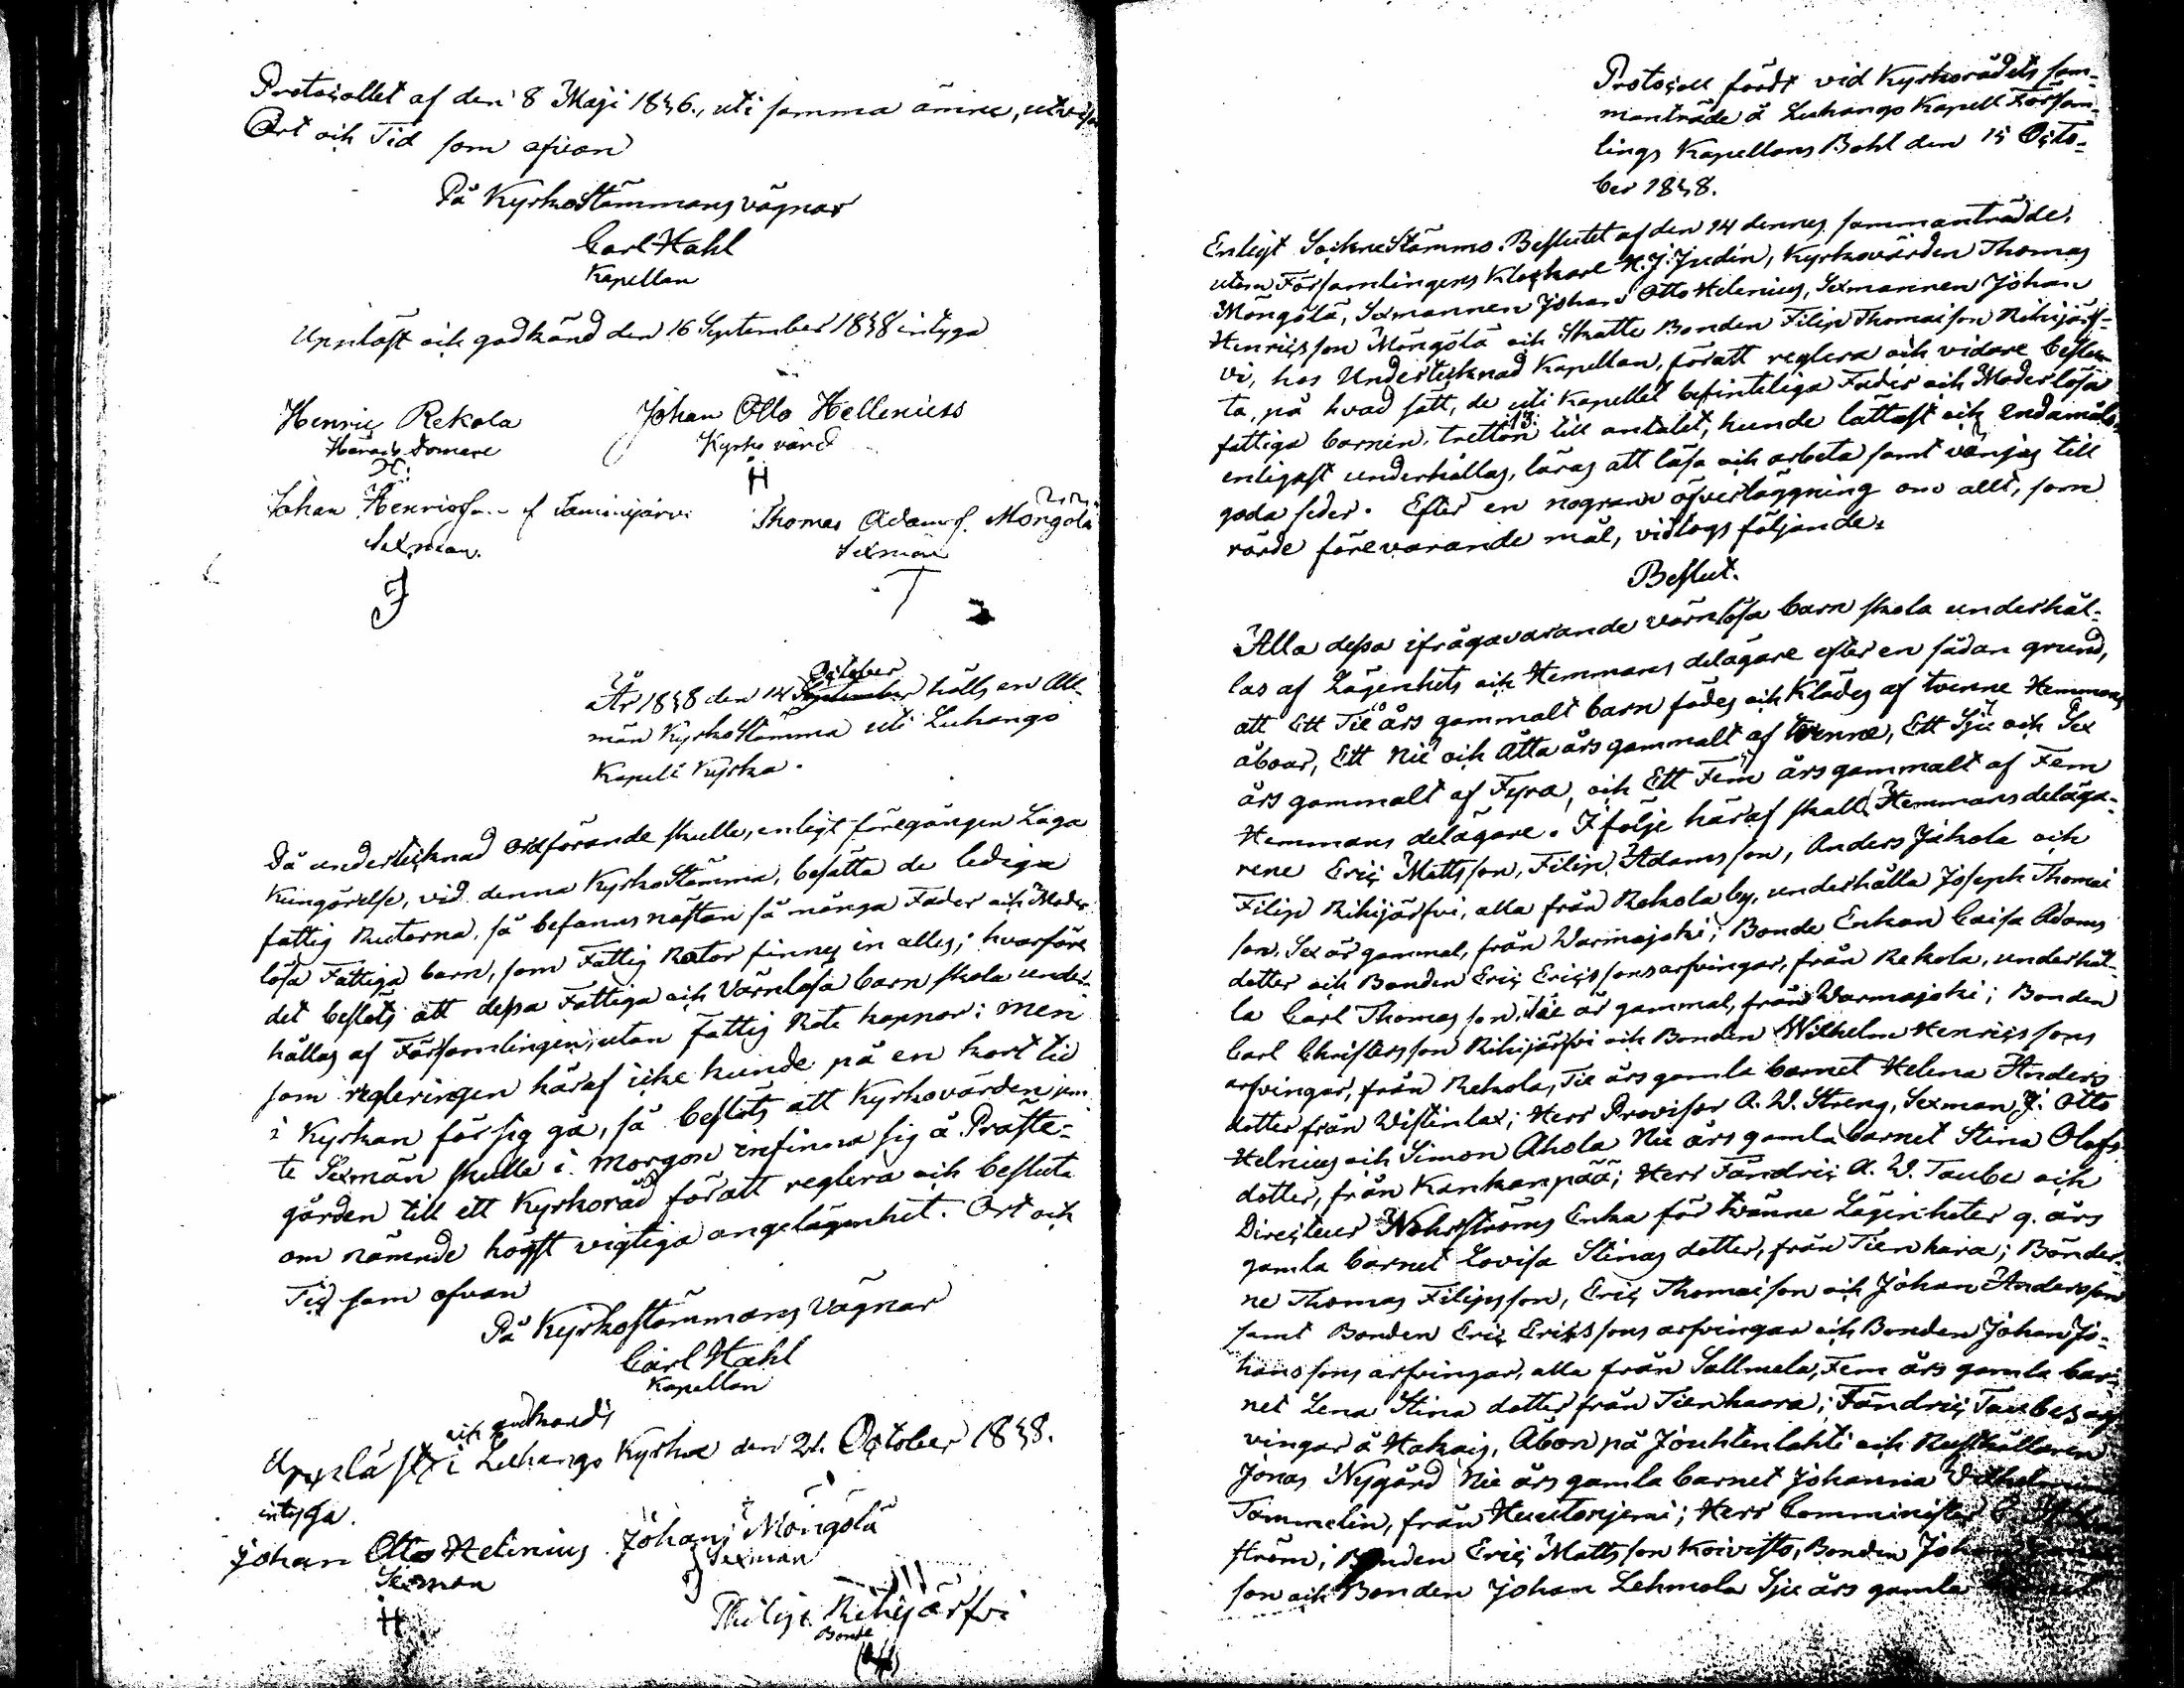 Protocollet af den 8 Maji 1846., uti samma ämne, utvisar
Ort och Tid som ofvan
På KyrkoStämmans vägnar
Carl Hahl
Kapellan
Uppläst och godkänd den 16 September 1848 intyga
Henric Rekola
Härads domare
Johan Otto Hellenius
Kyrko värd
H
Johan Henricss. f Tamijärvi
Sexman.
J
Thomas Adamss. Mongola
Sexman
T
År 1848 den 14 October hölls en All-
män KyrkoStämma uti Luhango
Kapell Kyrka.
Då undertecknad ordförande skulle, enligt föregången Laga
Kungörelse, vid denna KyrkoStämma, besätta de lediga
fattig Rotarna, så befanns nästan så många Fader och Moder
lösa Fattiga barn, som Fattig Rotor finnes in alles; hvarföre
det beslöts att dessa Fattiga och Värnlösa barn skola under-
hållas af Församlingen, utan fattig Rote kappor; men
som regleringen häraf icke kunde på en kort tid
i Kyrkan för sig gå, så beslöts att Kyrkovärden jem-
te Sexmän skulle i morgon infinna sig å Präste-
gården till ett Kyrkoråd för att reglera och besluta
om nämnde högst vigtiga angelägenhet. Ort och
Tid som ofvan
På Kyrkostämmans Vägnar
Carl Hahl
Kapellan
och godkändt
Uppläst i Luhango Kyrka den 21 October 1848.
intyga.
Johan Otto Helenius
Sexman
H
Johan Mongola
Sexman
Philip Rihijärfvi
Bonde
Protocoll fördt vid Kyrkorådets sam-
manträde å Luhango Kapell Försam-
lings Kapellans Bohl den 15 Octo-
ber 1848.
Enligt SockneStämmo Beslutet af den 14 dennes sammanträdde,
utom Församlingens Klockare H. J. Judin, Kyrkovärden Thomas
Mongola, Sexmannen Johan Otto Helenius, Sexmannen Johan
Henricsson Mongola och Skatte Bonden Filip Thomasson Rihijärf-
vi, hos Undertecknad Kapellan, för att reglera och vidare beslu-
ta, på hvad sätt, de uti Kapellet befinteliga Fader och Moderlösa
fattiga barnen, tretton 13. till antalet, kunde lättast och ändamåls-
enligast underhållas, läras att läsa och arbeta samt vänjas till
goda seder. Efter en nogrann öfverläggning om allt, som
rörde förevarande mål, vidtogs följande:
Beslut.
Alla dessa ifrågavarande värnlösa barn skola underhål-
las af Lägenhets och Hemmans delägare efter en sådan grund,
att Ett Tie 10 års gammalt barn födes och Klädes af tvenne Hemmans
åboar, Ett Nie och Åtta års gammalt af trenne, Ett Sju och Sex
års gammalt af Fyra, och Ett Fem års gammalt af Fem
Hemmans delägare. I följe häraf skall Hemmansdeläga-
rene Eric Mattsson, Filip Adamsson, Anders Jakola och
Filip Rihijärfvi, alla från Rekola by, underhålla Joseph Thomas
son, Sex år gammal, från Warmajoki; Bonde Enkan Caisa Adams
dotter och Bonden Eric Ericssons arfvingar, från Rekola, underhål-
la Carl Thomasson, Tie år gammal, från Warmajoki; Bonden
Carl Christersson Rihijärfvi och Bonden Wilhelm Henricssons
arfvingar, från Rekola, Tie års gamla barnet Helena Anders
dotter från Wistinlax; Herr Provisor A. W. Streng, Sexman J. Otto
Helenius och Simon Ahola Nie års gamla barnet Stina Olofs
dotter, från Kankanpää; Herr Fändric A. W. Taube och
Directeur Nohrströms Enka för tvänne Lägenheter 9. års
gamla barnet Lovisa Stinas dotter, från Tienhara; Bönder-
ne Thomas Filipsson, Eric Thomasson och Johan Andersson
samt Bonden Eric Ericssons arfvingar och Bonden Johan Jo-
hanssons arfvingar, alla från Sallmela, Fem års gamla bar-
net Lena Stina dotter från Tienhaara; Fändric Taubes arf
vingar å Hakais, Åbon på Jouhtenlahti och Rusthållaren
Jonas Nygård Nie års gamla barnet Johanna Wilhelmina
Tammelin, från Huutonjemi; Herr Comminister
ström; Bonden Eric Mattsson Koivisto, Bonden Johan
son och Bonden Johan Lehmola Sju års gamla